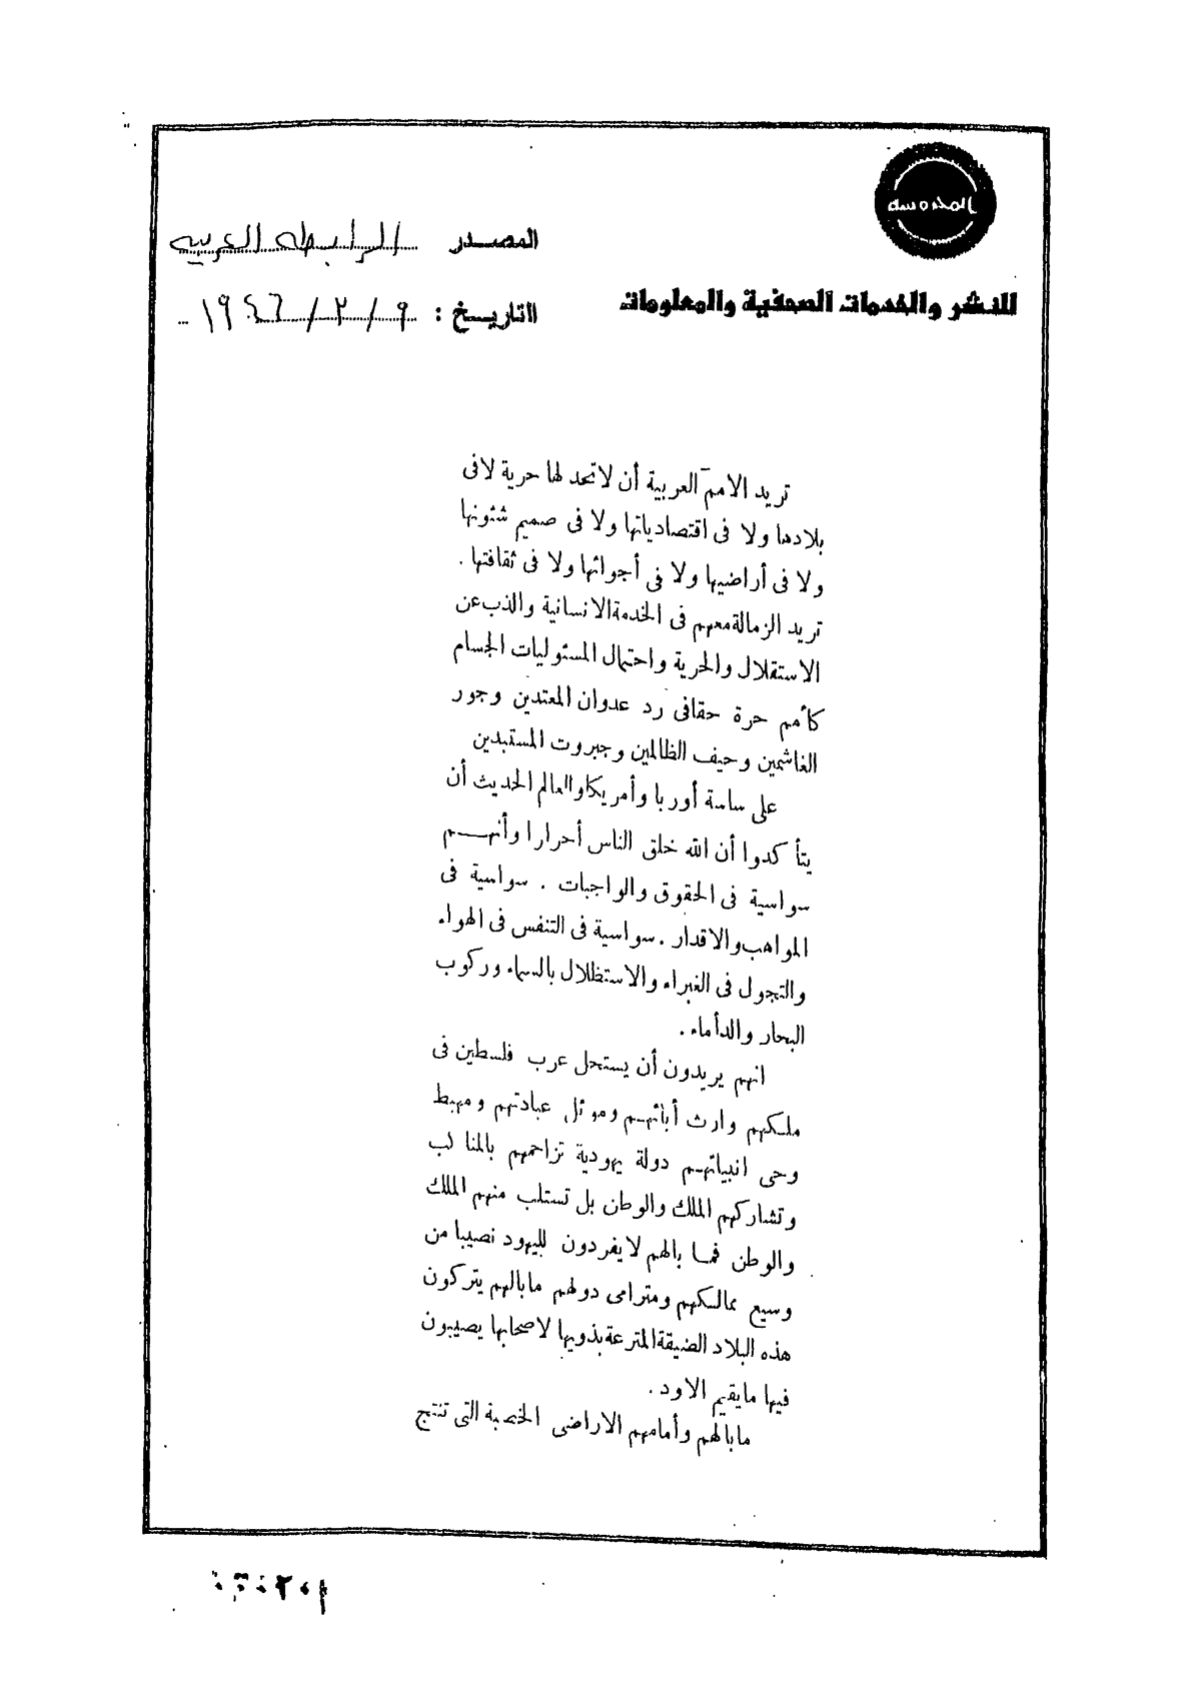 المحروسة
المصدر الرابطه العربيه
للنشر والخدمات الصحفية والمعلومات
التاريخ : ٩ / ٢ / ١٩٤٦
تريد الامم العربية أن لاتحد لها حرية لافى
بلادها ولا فى اقتصادياتها ولا فى صميم شئونها
ولا فى أراضيها ولا فى أجوائها ولا فى ثقافتها .
تريد الزمالة معهم فى الخدمة الانسانية والذب عن
الاستقلال والحرية واحتمال المسئوليات الجسام
كأمم حرة حقا فى رد عدوان المعتدين وجور
الغاشمين وحيف الظالمين وجبروت المستبدين
على ساسة أوربا وأمريكا والعالم الحديث أن
يتأكدوا أن الله خلق الناس أحرارا وأنهم
سواسية فى الحقوق والواجبات . سواسية فى
المواهب والاقدار . سواسية فى التنفس فى الهواء
والتجول فى الغبراء والاستظلال بالسماء وركوب
البحار والدأماء .
انهم يريدون أن يستحل عرب فلسطين فى
ملكهم وارث أبائهم وموئل عبادتهم ومهبط
وحى انبيائهم دولة يهودية تزاحمهم بالمناكب
وتشاركهم الملك والوطن بل تستلب منهم الملك
والوطن فما بالهم لا يفردون لليهود نصيبا من
وسيع ممالكهم ومترامى دولهم مابالهم يتركون
هذه البلاد الضيقة المترعة بذويها لاصحابها يصيبون
فيها مايقيم الاود .
مابالهم وأمامهم الاراضى الخصبة التى تنتج